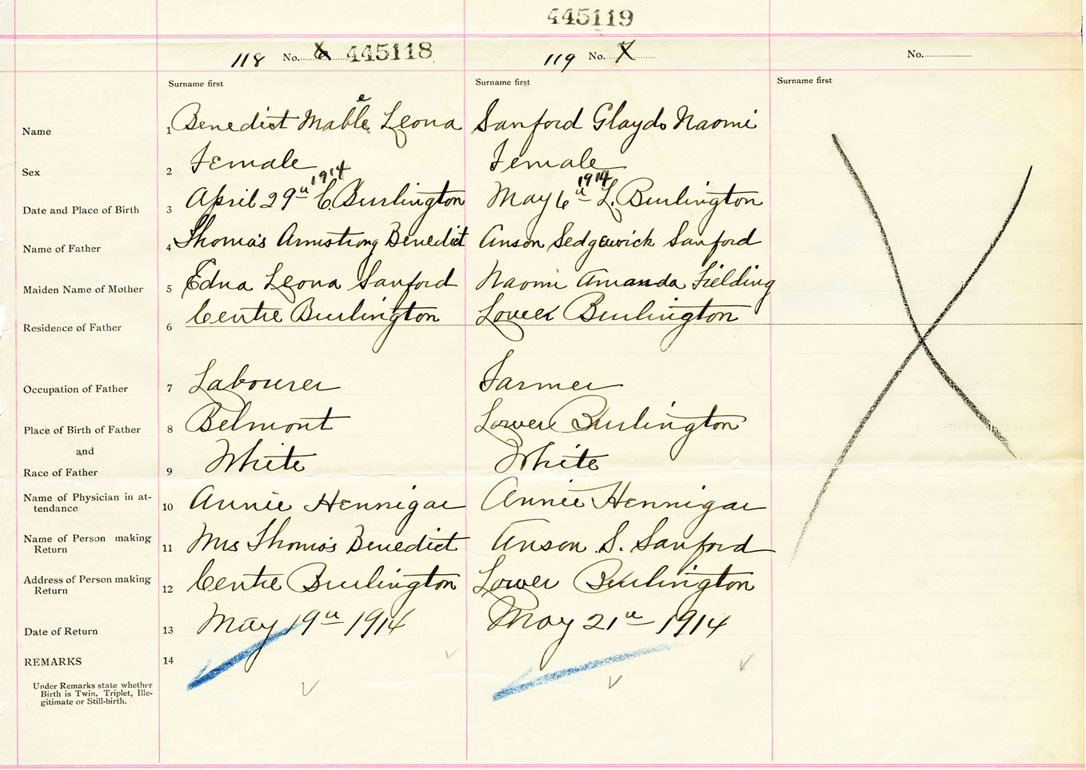 445119
118 No. 6 445118 119 No. 7 No.
Surname first Surname first Surname first
Name 1 Benedict Mable Leona Sanford Glayds Naomi
Sex 2 Female Female
1914 1914
Date and Place of Birth 3 April 29th C. Burlington May 6th L. Burlington
Name of Father 4 Thomas Armstrong Benedict Anson Sedgewick Sanford
Maiden Name of Mother 5 Edna Leona Sanford Naomi Amanda Fielding
Residence of Father 6 Centre Burlington Lower Burlington
Occupation of Father 7 Labourer Farmer
Place of Birth of Father 8 Belmont Lower Burlington
and
Race of Father 9 White White
Name of Physician in at-
tendance 10 Annie Hennigar Annie Hennigar
Name of Person making
Return 11 Mrs Thomas Benedict Anson S. Sanford
Address of Person making
Return 12 Centre Burlington Lower Burlington
Date of Return 13 May 19th 1914 May 21th 1914
REMARKS 14
Under Remarks state whether
Birth is Twin, Triplet, Ille-
gitimate or Still-birth.